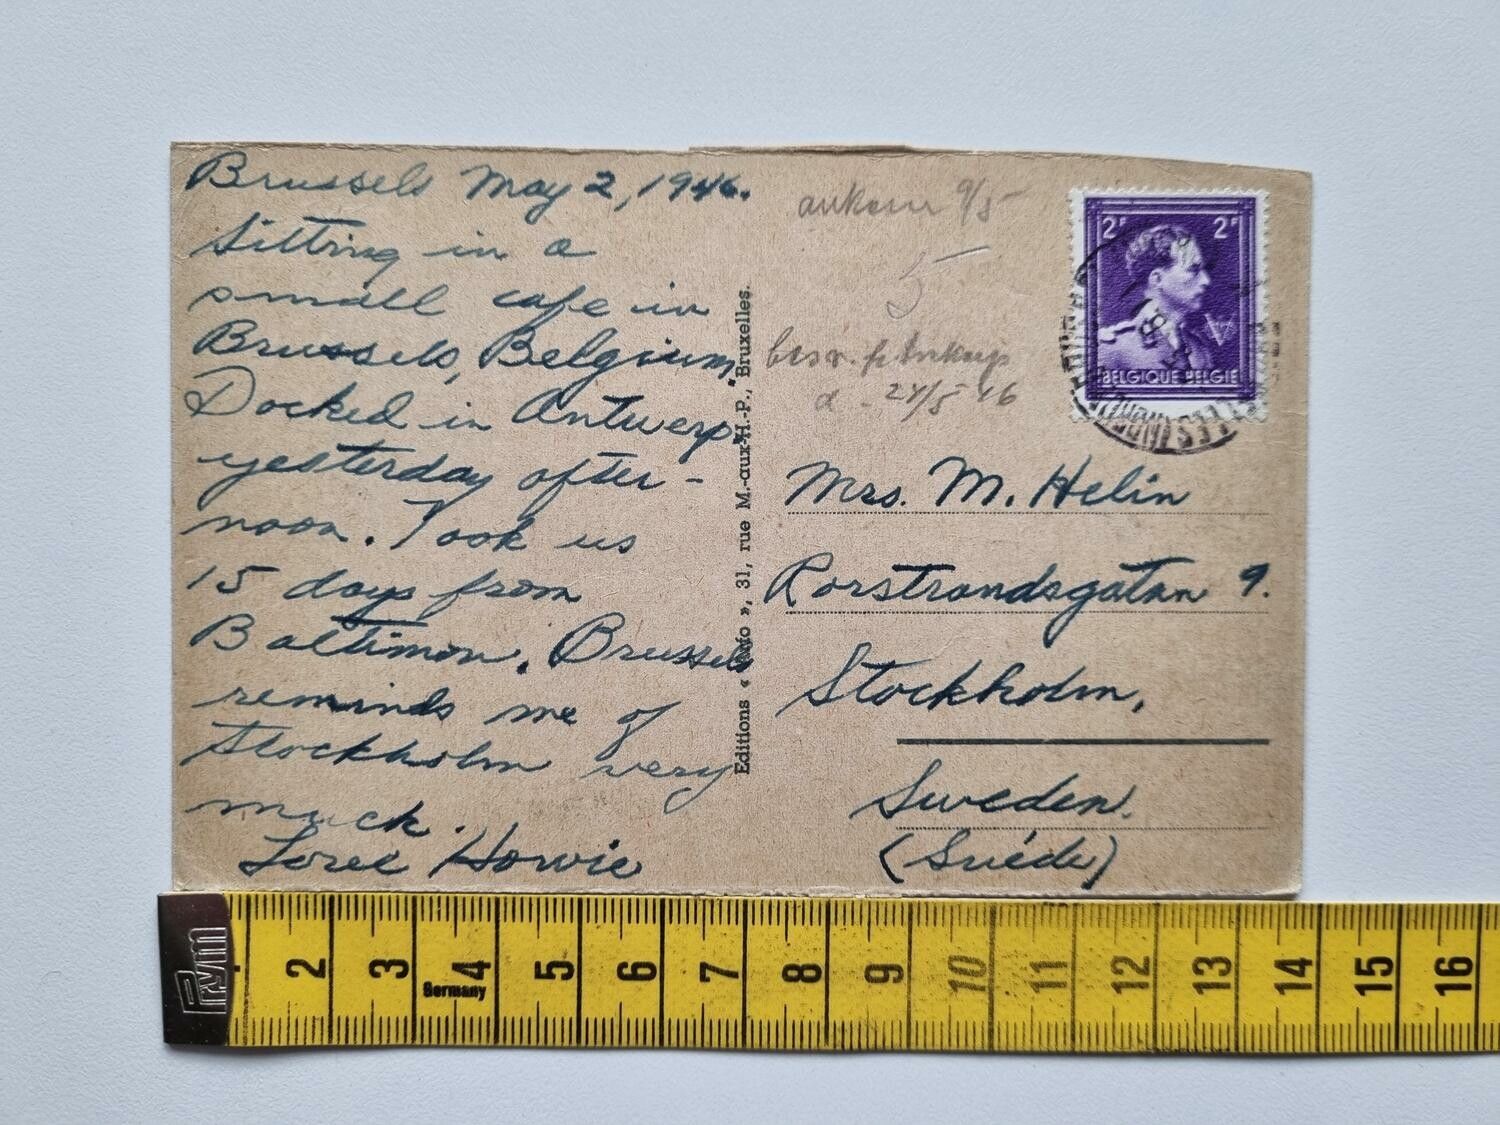 Brussels May 2, 1946.
Sitting in a
small cafe in
Brussels, Belgium.
Docked in Antwerp
yesterday after-
noon. Took us
15 days from
Baltimore. Brussels
reminds me of
Stockholm very
much.
Howie
Editions « », 31, rue M.-aux-H.-P., Bruxelles.
ankom 9/5
5
24/5 46
2F 2F
BELGIQUE BELGIE
Mrs. M. Helin
Rorstrandsgatan 9.
Stockholm,
Sweden.
(Suéde)
Prym
2 3 4 5 6 7 8 9 10 11 12 13 14 15 16
Germany